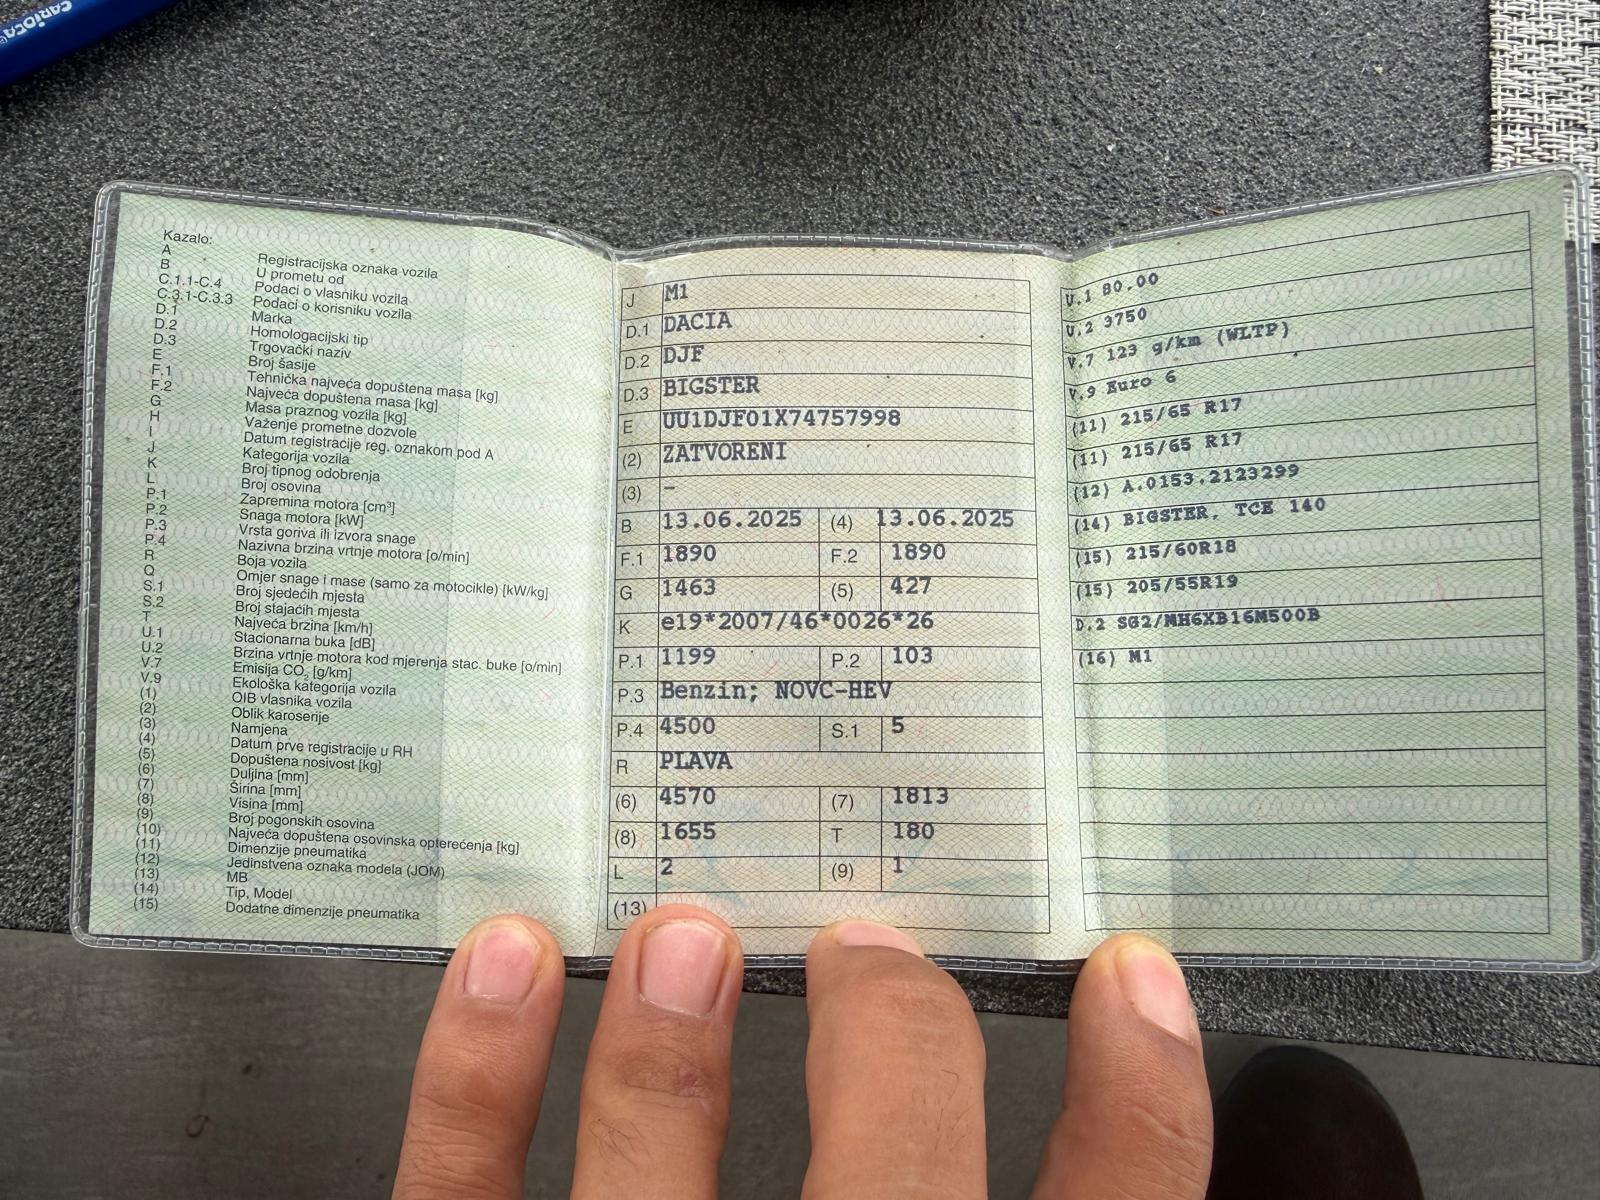 CARIOCA
Kazalo:
A Registracijska oznaka vozila
B U prometu od
C.1.1-C.4 Podaci o vlasniku vozila
C.3.1-C.3.3 Podaci o korisniku vozila
D.1 Marka
D.2 Homologacijski tip
D.3 Trgovački naziv
E Broj šasije
F.1 Tehnička najveća dopuštena masa [kg]
F.2 Najveća dopuštena masa [kg]
G Masa praznog vozila [kg]
H Važenje prometne dozvole
I Datum registracije reg. oznakom pod A
J Kategorija vozila
K Broj tipnog odobrenja
L Broj osovina
P.1 Zapremina motora [cm³]
P.2 Snaga motora [kW]
P.3 Vrsta goriva ili izvora snage
P.4 Nazivna brzina vrtnje motora [o/min]
R Boja vozila
Q Omjer snage i mase (samo za motocikle) [kW/kg]
S.1 Broj sjedećih mjesta
S.2 Broj stajaćih mjesta
T Najveća brzina [km/h]
U.1 Stacionarna buka [dB]
U.2 Brzina vrtnje motora kod mjerenja stac. buke [o/min]
V.7 Emisija CO₂ [g/km]
V.9 Ekološka kategorija vozila
(1) OIB vlasnika vozila
(2) Oblik karoserije
(3) Namjena
(4) Datum prve registracije u RH
(5) Dopuštena nosivost [kg]
(6) Duljina [mm]
(7) Širina [mm]
(8) Visina [mm]
(9) Broj pogonskih osovina
(10) Najveća dopuštena osovinska opterećenja [kg]
(11) Dimenzije pneumatika
(12) Jedinstvena oznaka modela (JOM)
(13) MB
(14) Tip, Model
(15) Dodatne dimenzije pneumatika
J M1
D.1 DACIA
D.2 DJF
D.3 BIGSTER
E UU1DJF01X74757998
(2) ZATVORENI
(3) –
B 13.06.2025 (4) 13.06.2025
F.1 1890 F.2 1890
G 1463 (5) 427
K e19*2007/46*0026*26
P.1 1199 P.2 103
P.3 Benzin; NOVC-HEV
P.4 4500 S.1 5
R PLAVA
(6) 4570 (7) 1813
(8) 1655 T 180
L 2 (9) 1
(13)
U.1 80.00
U.2 3750
V.7 123 g/km (WLTP)
V.9 Euro 6
(11) 215/65 R17
(11) 215/65 R17
(12) A.0153.2123299
(14) BIGSTER, TCE 140
(15) 215/60R18
(15) 205/55R19
D.2 SG2/MH6XB16M500B
(16) M1